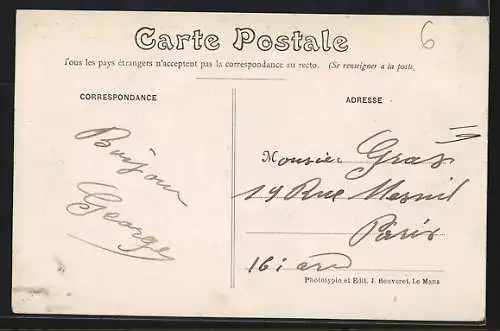 6
Carte Postale
Tous les pays étrangers n'acceptent pas la correspondance au recto. (Se renseigner à la poste.
CORRESPONDANCE
Bonjour
Georges
ADRESSE
Monsieur Gras
19 Rue Mesnil
Paris
16i ard
Phototypie et Edit. J. Bouveret, Le Mans